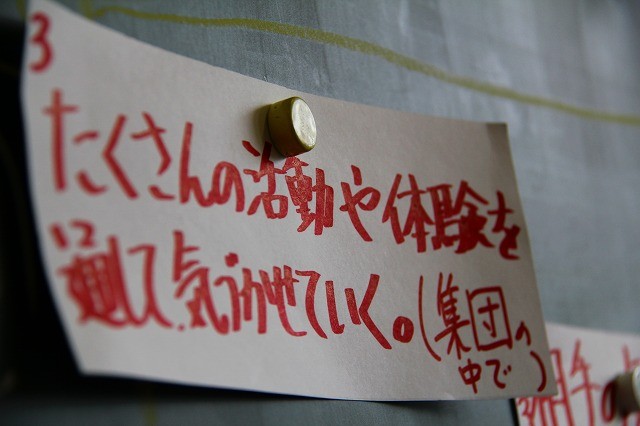 3
たくさんの活動や体験を
通して、気づかせていく。(集団の
中で)
相手の